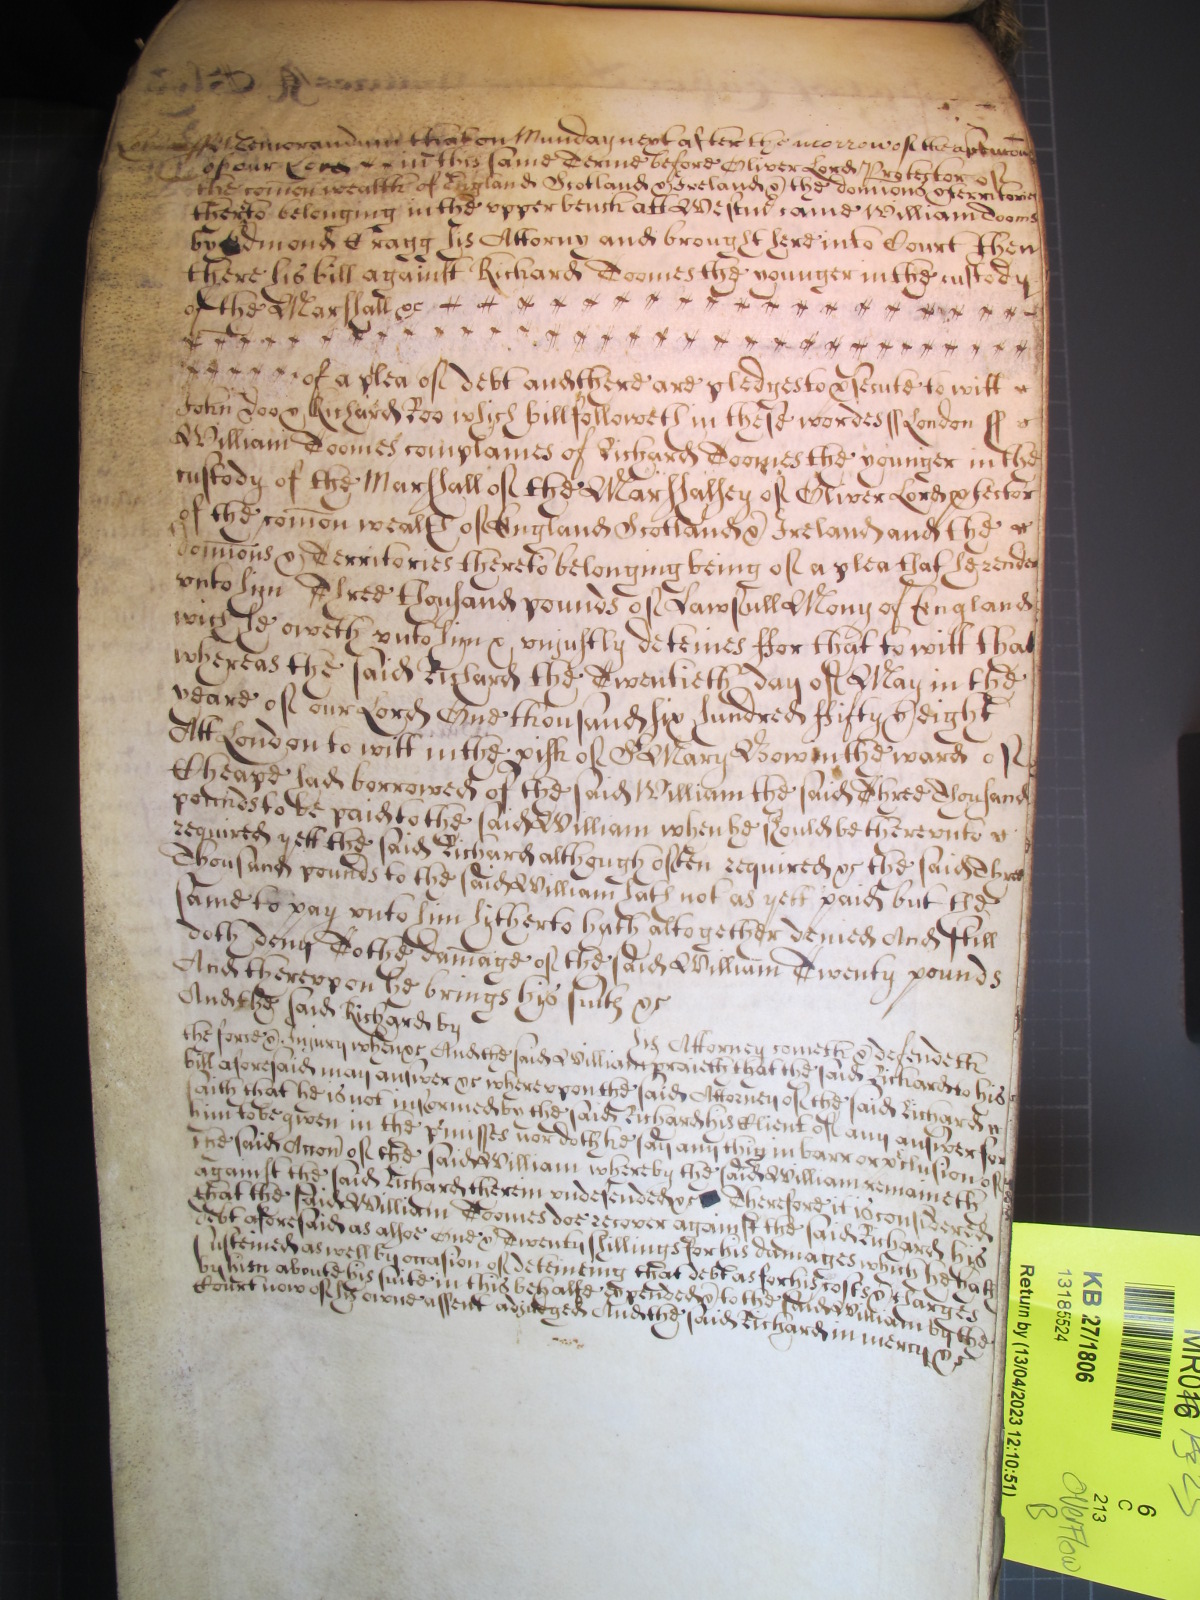 London ss Memorandum that on Munday next after the morrow of the Ascention
of our Lord in this same Terme before Oliver Lord Protector of
the comon wealth of England Scotland & Ireland & the dominions & territories
therto belonging in the upper bench att Westm came William Toomes
by Edmond Cragg his Attorny and brought here into Court then
there his bill against Richard Toomes the younger in the custody
of the Marshall &c
of a plea of debt and there are pledges to psecute to witt
John Doo & Richard Roo which bill followeth in these wordes ss London ss
William Toomes complaines of Richard Toomes the younger in the
custody of the Marshall of the Marshalsey of Oliver Lord ptector
of the comon wealth of England Scotland & Ireland and the
dominions & Territories thereto belonging being of a plea that he render
unto him Three thousand pounds of Lawfull Mony of England
wich he oweth unto him & unjustly deteines ffor that to witt that
whereas the said Richard the Twentieth day of May in the
yeare of our Lord One thousand six hundred ffifty & eight
Att London to witt in the pish of St Mary Bow in the ward of
Cheape had borrowed of the said William the said Three Thousand
pounds to be paid to the said William when he should be thereunto
required yett the said Richard although often required &c the said Three
Thousand pounds to the said William hath not as yett paid but the
same to pay unto him hitherto hath altogether denied And still
doth deny To the damage of the said William Twenty pounds
And thereupon he brings his suite &c
And the said Richard by his Attorney cometh & defendeth
the force & Injury when &c And the said William praieth that the said Richard to his
bill aforesaid may answer &c whereupon the said Attorney of the said Richard
saith that he is not informed by the said Richard his Client of any answer for
him to be given in the pmisses nor doth he say any thing in barr or pclusion of
the said Accon of the said William whereby the said William remaineth
against the said Richard therein undefended &c Therefore it is considered
that the said William Toomes doe recover against the said Richard his
debt aforesaid as alsoe One & Twenty shillings for his damages which he hath
susteined as well by occasion of deteineing that debt as for his costs & charges
by him aboute his suite in this behalfe expended & to the said William by the
Court now of his owne assent adjudged And the said Richard in mercy &c
MR016
KB 27/1806
13185524
Return by (13/04/2023 12:10:51)
6
C
213
Overflow
B